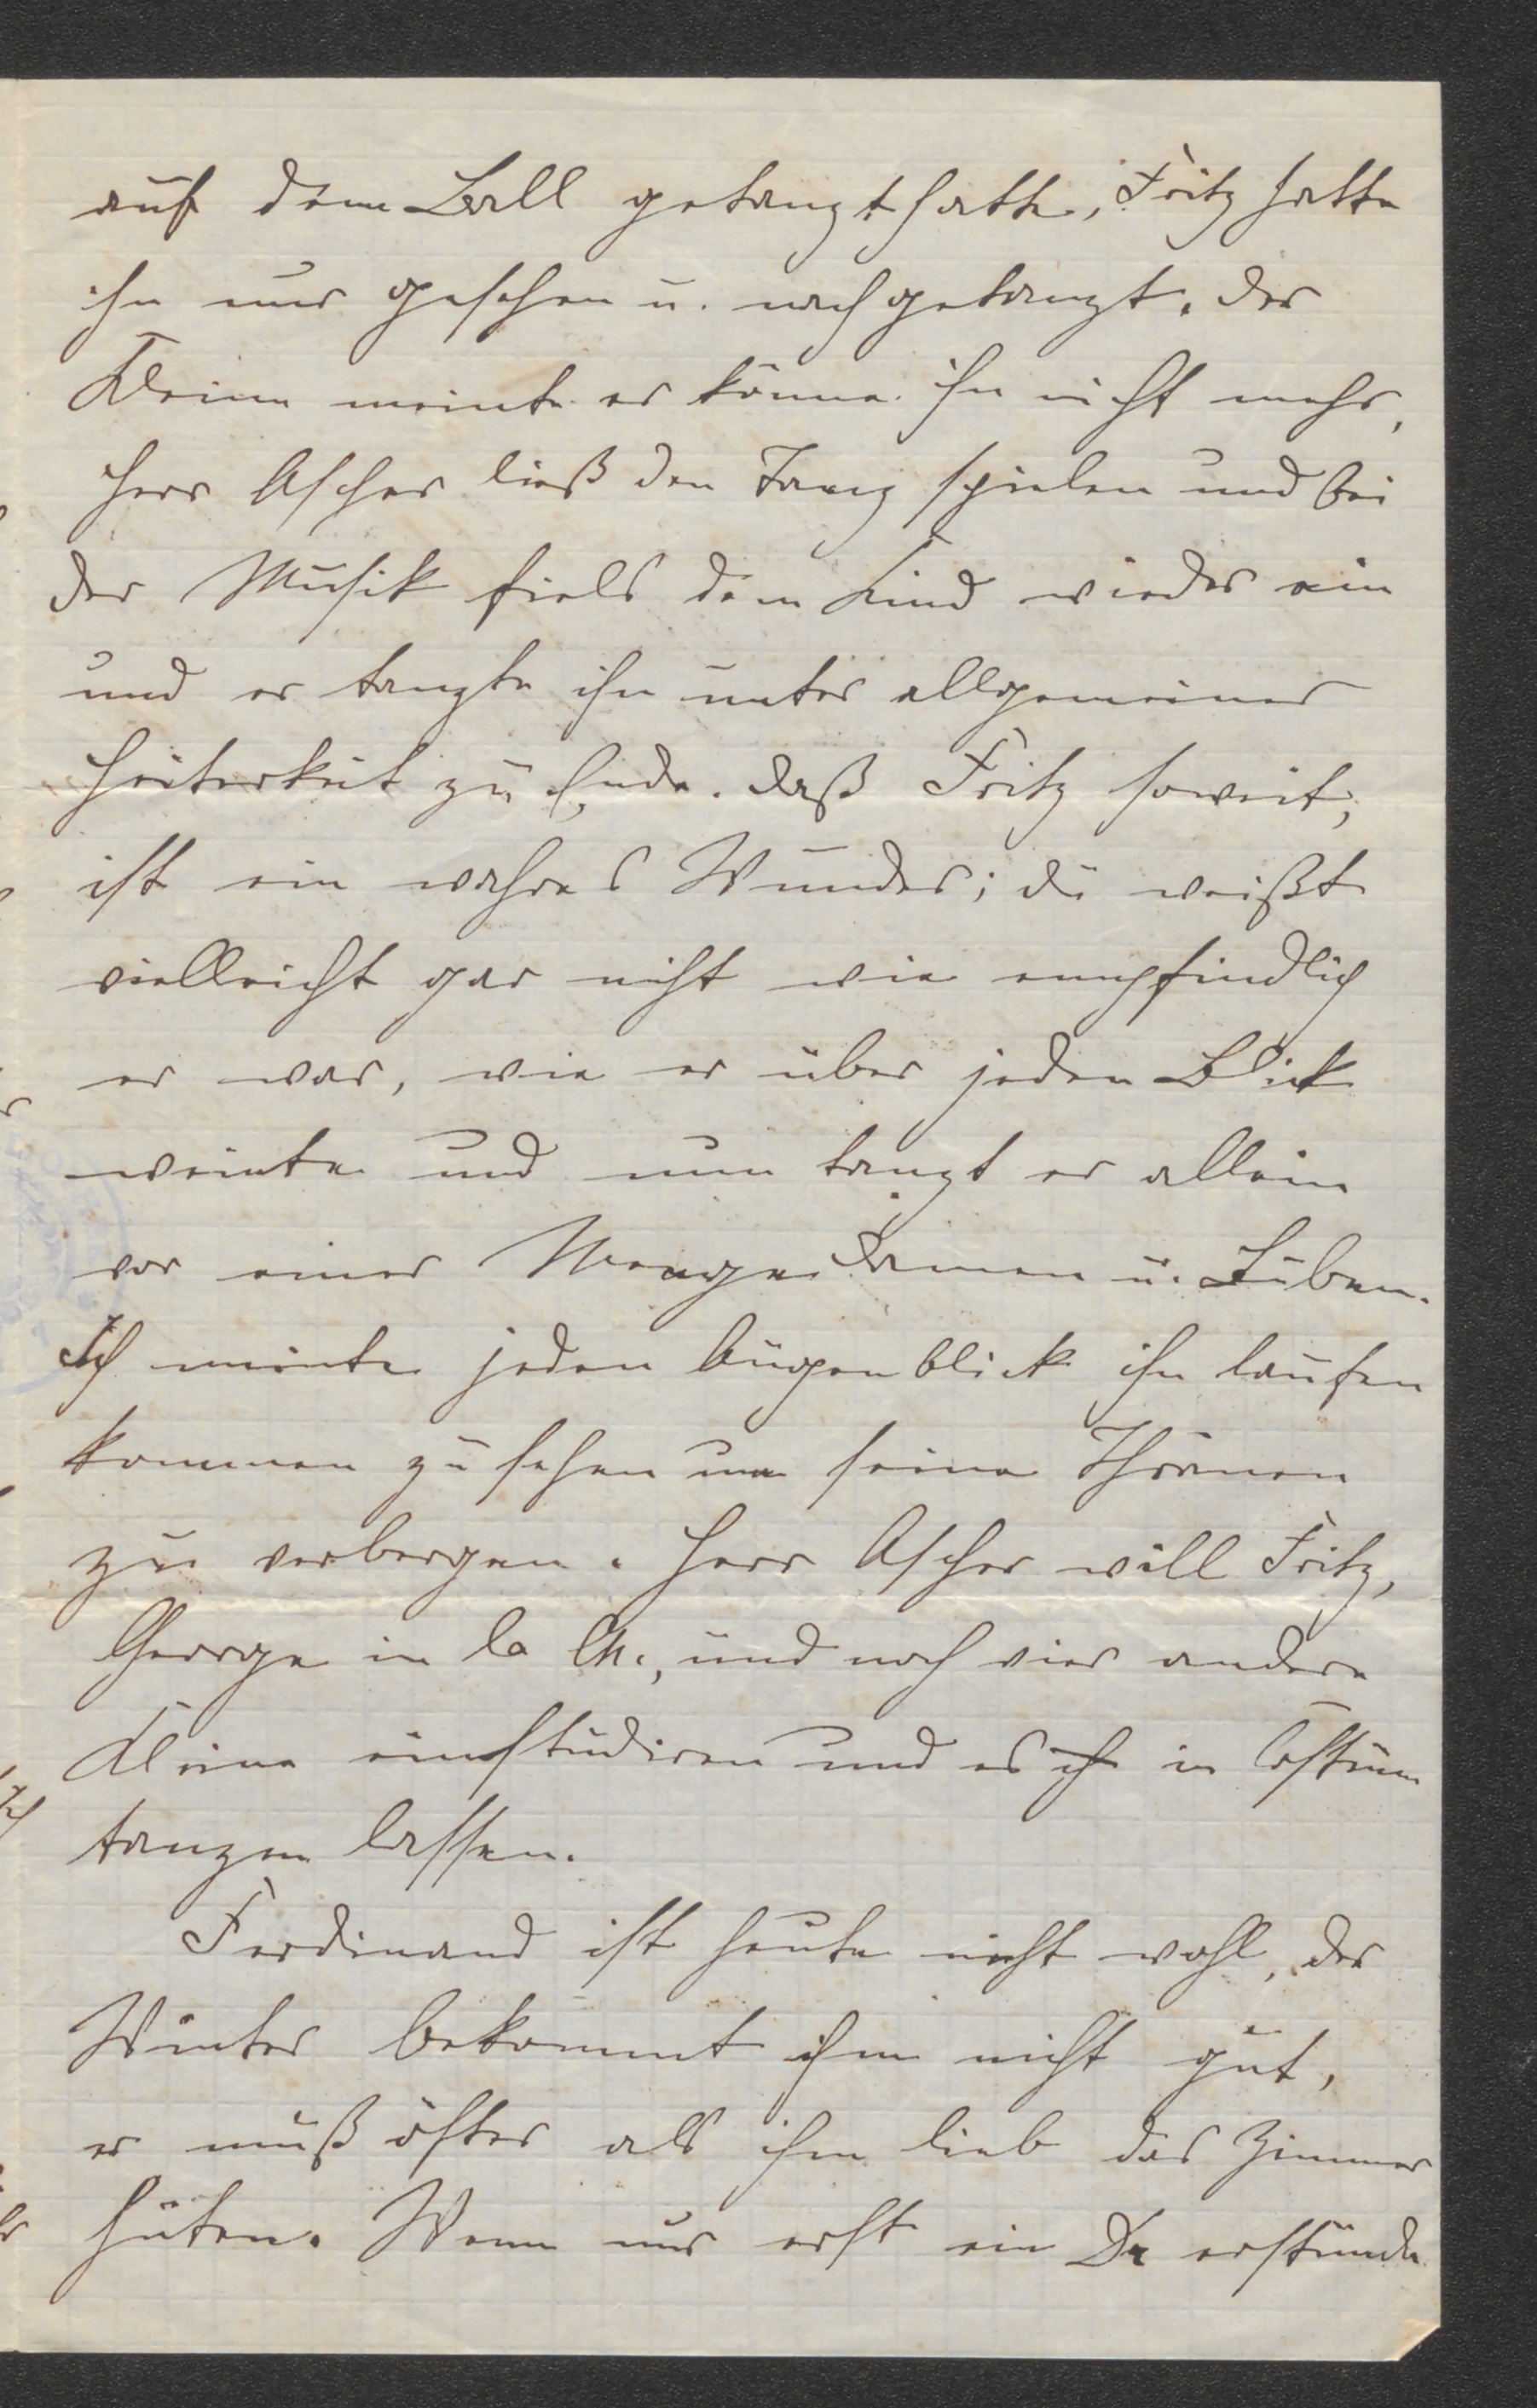 auf dem Ball getanzt hatte, Fritz hatte
ihn nur gesehen u. nachgetanzt. Der
Kleine meinte er könne ihn nicht mehr,
Herr Ascher ließ den Tanz spielen und bei
der Musik fiels dem Kind wieder ein
und er tanzte ihn unter allgemeiner
Heiterkeit zu Ende. Daß Fritz soweit,
ist ein wahres Wunder; du weißt
vielleicht gar nicht wie empfindlich
er war, wie er über jeden Blick
weinte und nun tanzt er allein
vor einer Menge Damen u. Buben.
Ich meinte jeden Augenblick ihn laufen
kommen zu sehen um seine Thränen
zu verbergen. Herr Ascher will Fritz,
George in la Ch., und noch vier andere
Kleine einstudiren und es in Costüm
tanzen lassen.
Ferdinand ist heute nicht wohl, der
Winter bekommt ihm nicht gut,
er muß öfter als ihm lieb das Zimmer
hüten. Wenn nur erst ein Dr erstünde